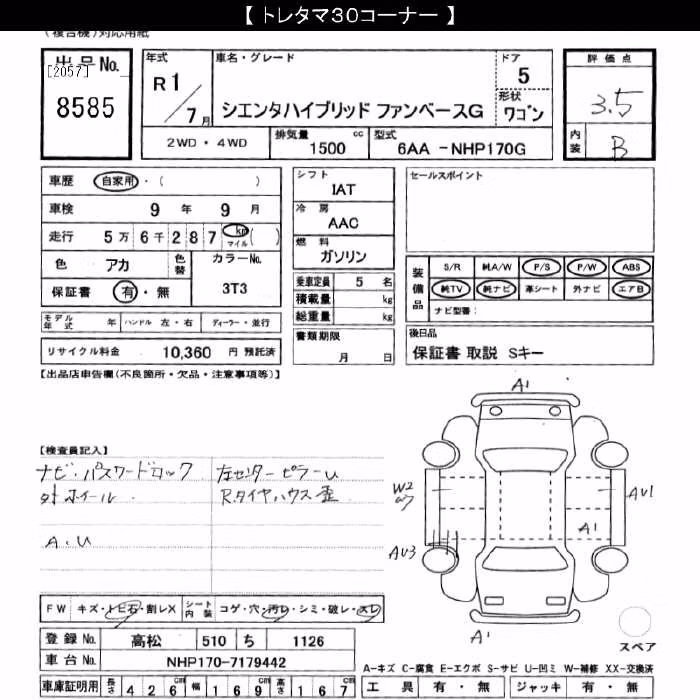 【 トレタマ30コーナー 】
(複合機)対応用紙
出品No.
[2057]
8585
年式
R1/7月
車名・グレード
シエンタハイブリッド ファンベースG
ドア
5
形状
ワゴン
2WD・4WD
排気量 1500 cc
型式 6AA -NHP170G
評価点
3.5
内装 B
車歴 自家用・( )
車検 9年 9月
走行 5万6千287 km マイル ( )
色 アカ 色替
カラーNo.
3T3
保証書 有・無
モデル年式 年 ハンドル 左・右 ディーラー・並行
リサイクル料金 10,360 円 預託済
シフト
IAT
冷房
AAC
燃料
ガソリン
乗車定員 5 名
積載量 kg
総重量 kg
書類期限
月 日
セールスポイント
装備品
S/R 純A/W P/S P/W ABS
純TV 純ナビ 革シート 外ナビ エアB
ナビ型番:
後日品
保証書 取説 Sキー
【出品店申告欄(不良箇所・欠品・注意事項等)】
【検査員記入】
ナビ・パスワードロック
外ホイール
A.U
左センターピラーU
Rタイヤハウス歪
A1
W2
AU1
A1
AU3
A1
スペア
FW キズ・トビ石・割レX
シート内装 コゲ・穴・汚レ・シミ・破レ・スレ
登録No. 高松 510 ち 1126
車台No. NHP170-7179442
車庫証明用 長さ 426cm 幅 169cm 高さ 167cm
A-キズ C-腐食 E-エクボ S-サビ U-凹ミ W-補修 XX-交換済
工具 有・無 ジャッキ 有・無